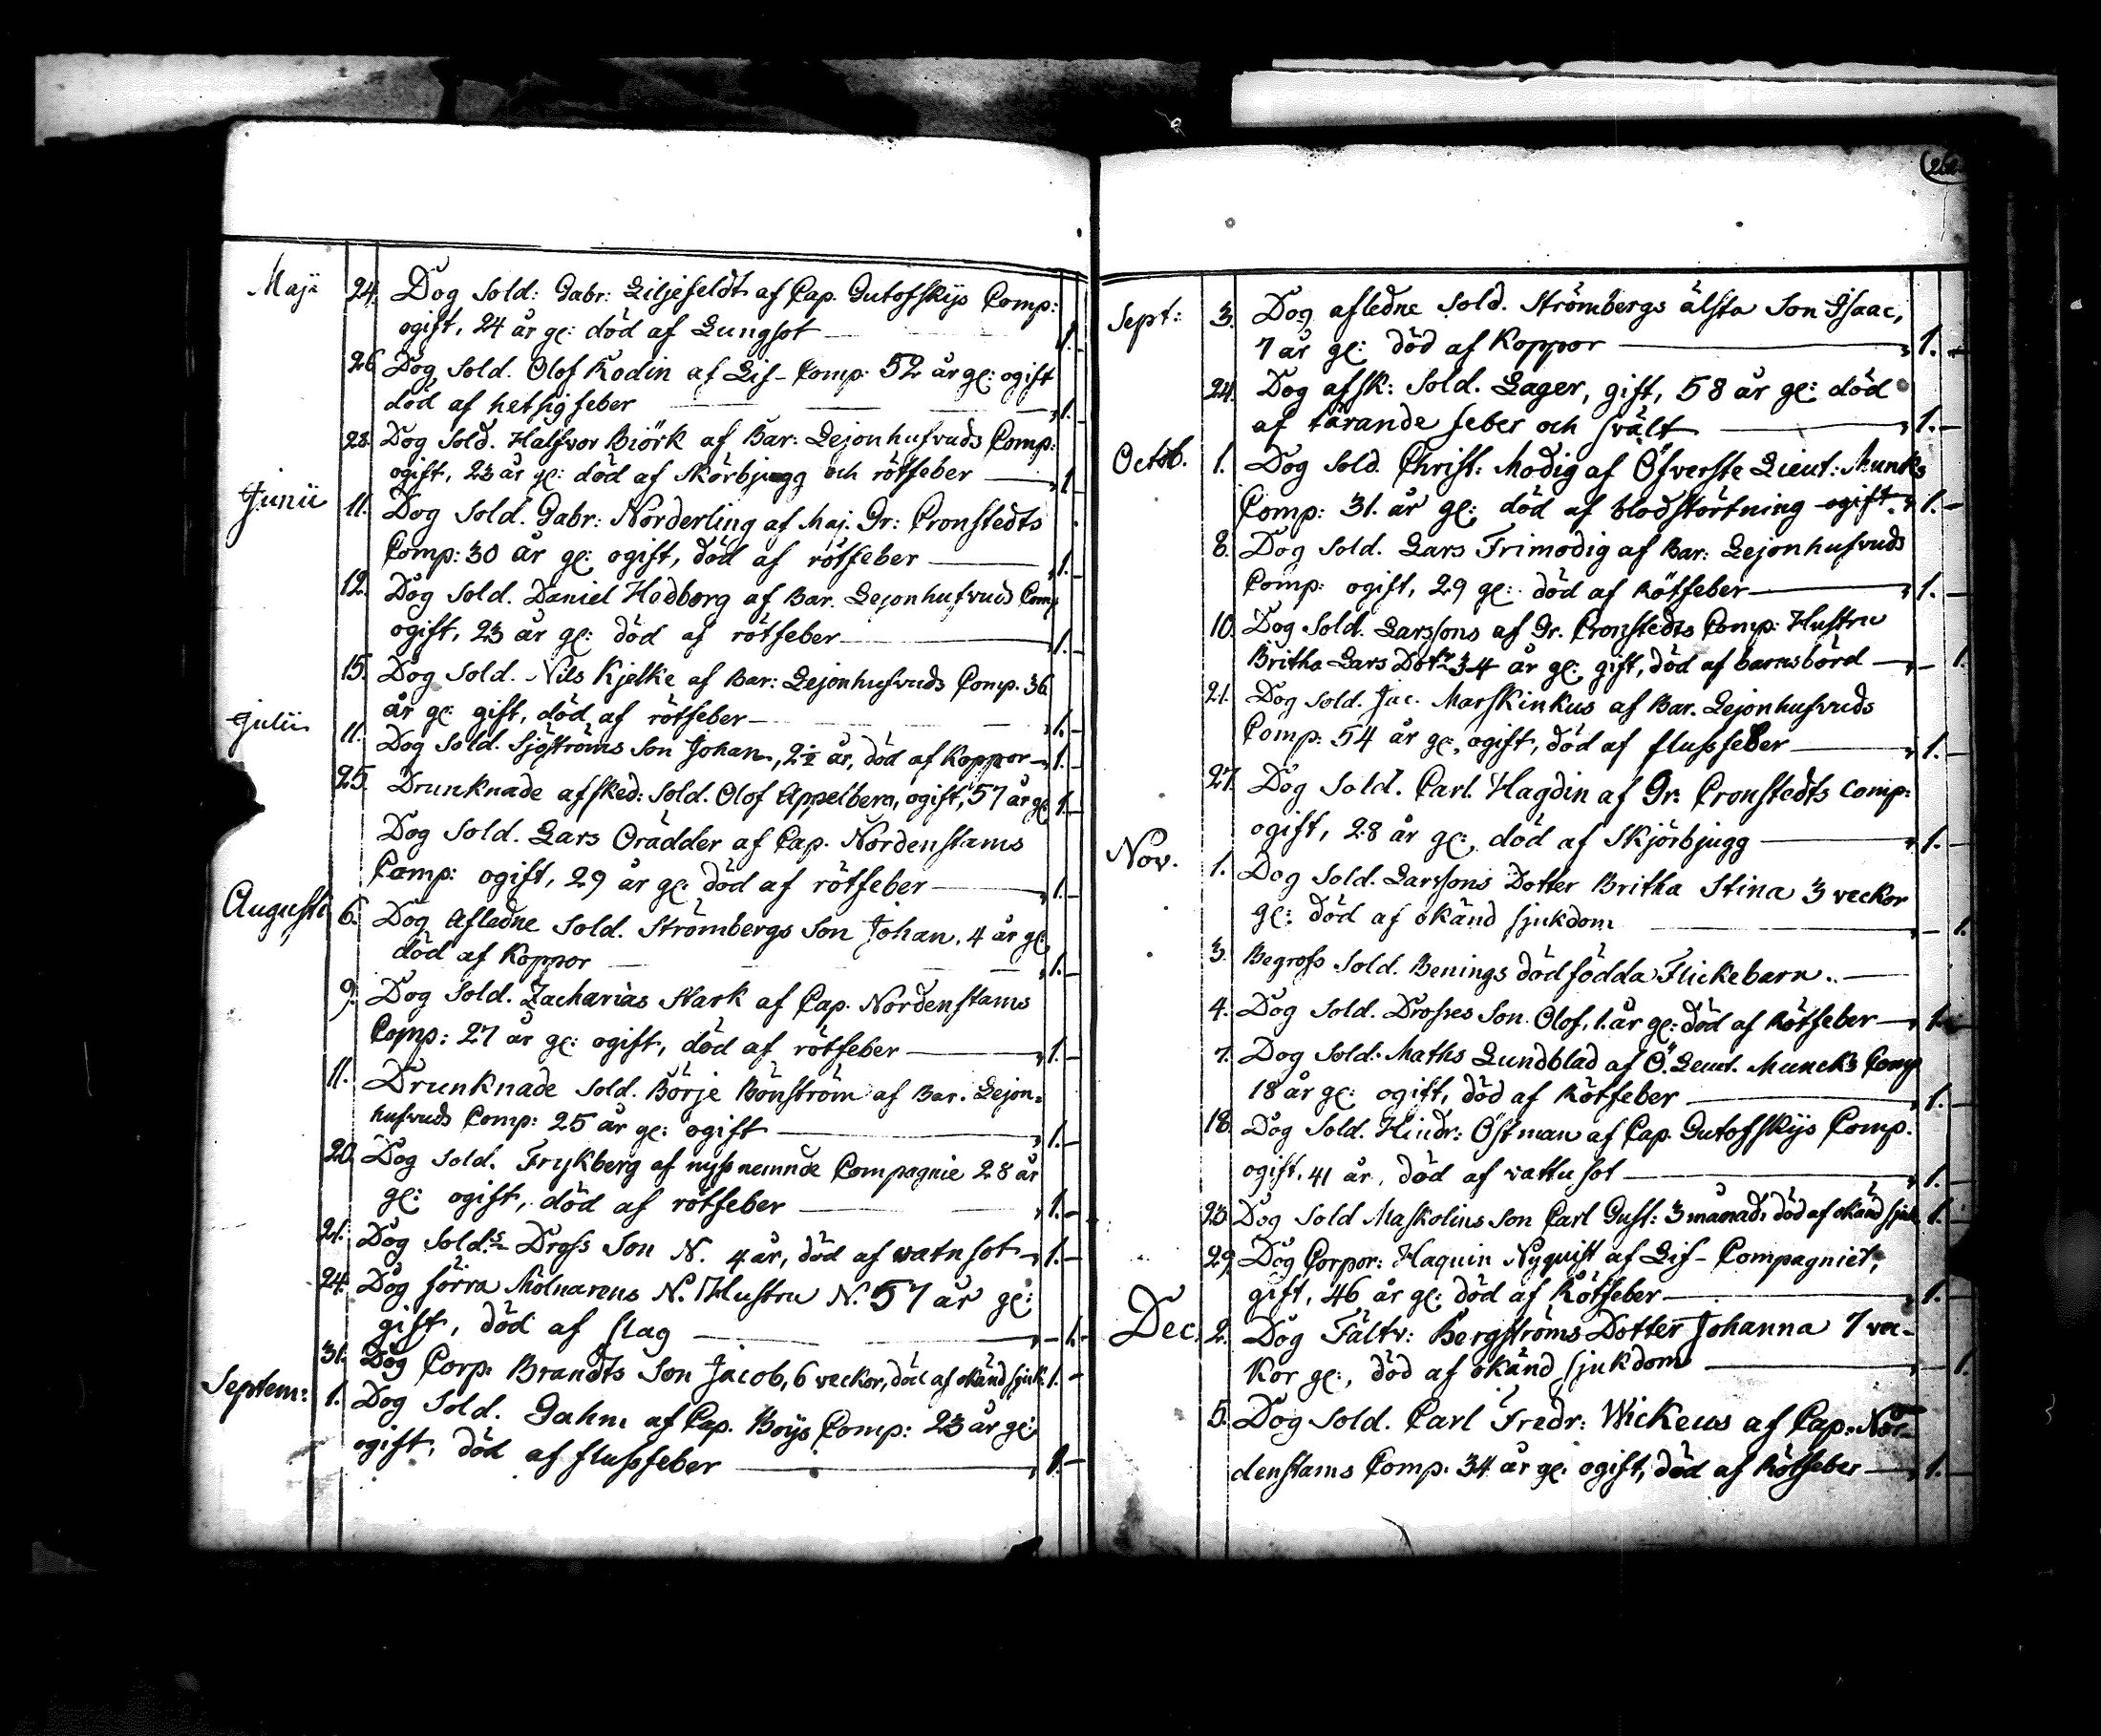 Maji 24. Dog Sold: Gabr: Liljefeldt af Cap. Gutofskijs Comp:
ogift, 24 år gl: död af Lungsot 1.
26 Dog Sold. Olof Kodin af Lif-Comp. 52 år gl: ogift
död af hetsig feber 1.
28. Dog Sold. Halfvor Biörk af Bar: Lejonhufvuds Comp:
ogift, 23 år gl: död af Skörbjugg och rötfeber 1
Junii 11. Dog Sold. Gabr: Norderling af Maj. Gr: Cronstedts
Comp: 30 år gl: ogift, död af rötfeber 1.
12. Dog Sold. Daniel Hedborg af Bar. Lejonhufvuds Comp
ogift, 23 år gl: död af rötfeber 1.
15. Dog Sold. Nils Kjelke af Bar: Lejonhufvuds Comp. 36
år gl: gift, död af rötfeber 1.
Julii 11. Dog Sold. Sjöströms Son Johan, 2½ år, död af Koppor 1.
25. Drunknade afsked: Sold. Olof Appelberg, ogift, 57 år gl 1.
Dog Sold. Lars Orädder af Cap. Nordenstams
Comp: ogift, 29 år gl: död af rötfeber 1.
Augusti 6. Dog Afledne Sold. Strömbergs Son Johan, 4 år gl:
död af Koppor 1.
9. Dog Sold. Zacharias Stark af Cap. Nordenstams
Comp: 27 år gl: ogift, död af rötfeber 1.
11. Drunknade Sold. Börje Bönström af Bar. Lejon=
hufvuds Comp: 25 år gl: ogift 1.
20. Dog Sold. Frykberg af nyssnemnde Compagnie 28 år
gl: ogift, död af rötfeber 1.
21. Dog Sold:s Dross Son N. 4 år, död af vatusot 1.
24. Dog förra Mölnarens N. Hustru N. 57 år gl:
gift, död af slag 1.
31. Dog Corp: Brandts Son Jacob, 6 veckor, död af okänd sjuk. 1.
Septem: 1. Dog Sold. Gahm af Cap. Boijs Comp: 23 år gl:
ogift, död af flussfeber 1.
Sept: 3. Dog afledne Sold. Strömbergs älsta Son Isaac,
7 år gl: död af Koppor 1.
24. Dog afsk: Sold. Lager, gift, 58 år gl: död
af tärande feber och svält 1.
Octob. 1. Dog Sold. Christ: Modig af Öfverste Lieut: Munks
Comp: 31. år gl: död af blodstörtning ogift. 1.
8. Dog Sold. Lars Trimodig af Bar: Lejonhufvuds
Comp: ogift, 29 gl: död af Rötfeber 1.
10. Dog Sold. Larssons af Gr. Cronstedts Comp: Hustru
Britha Lars Dotr 34 år gl: gift, död af barnsbörd 1.
21. Dog Sold. Jac. Marskinkus af Bar. Lejonhufvuds
Comp: 54 år gl:, ogift, död af flussfeber 1.
27. Dog Sold. Carl Hagdin af Gr: Cronstedts Comp:
ogift, 28 år gl:, död af Skjörbjugg 1.
Nov. 1. Dog Sold. Larssons Dotter Britha Stina 3 veckor
gl: död af okänd sjukdom 1.
3. Begrofs Sold. Benings dödfödda Flickebarn.
4. Dog Sold. Drosves Son Olof, 1. år gl: död af Rötfeber 1.
7. Dog Sold: Maths Lundblad af Ö. Leut. Muncks Comp
18 år gl: ogift, död af Rötfeber 1.
18. Dog Sold. Hindr: Östman af Cap. Gutofskijs Comp.
ogift, 41 år, död af vattusot 1.
23. Dog Sold Maskolins Son Carl Gust: 3 månad: död af okänd sjuk 1.
29. Dog Corpor: Haquin Nyquist af Lif-Compagniet,
gift, 46 år gl: död af Rötfeber 1.
Dec. 2. Dog Fältv: Bergströms Dotter Johanna 7 vec-
kor gl:, död af okänd sjukdom 1.
5. Dog Sold. Carl Fredr: Wickeus af Cap: Nor-
denstams Comp. 34 år gl. ogift, död af Rötfeber 1.